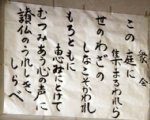 衆会
この庭に
集まるわれら
世のわざの
しなこそかわれ
もろともに
恵みにとけて
むつみあう心の声に
讃仏のうれしき
しらべ